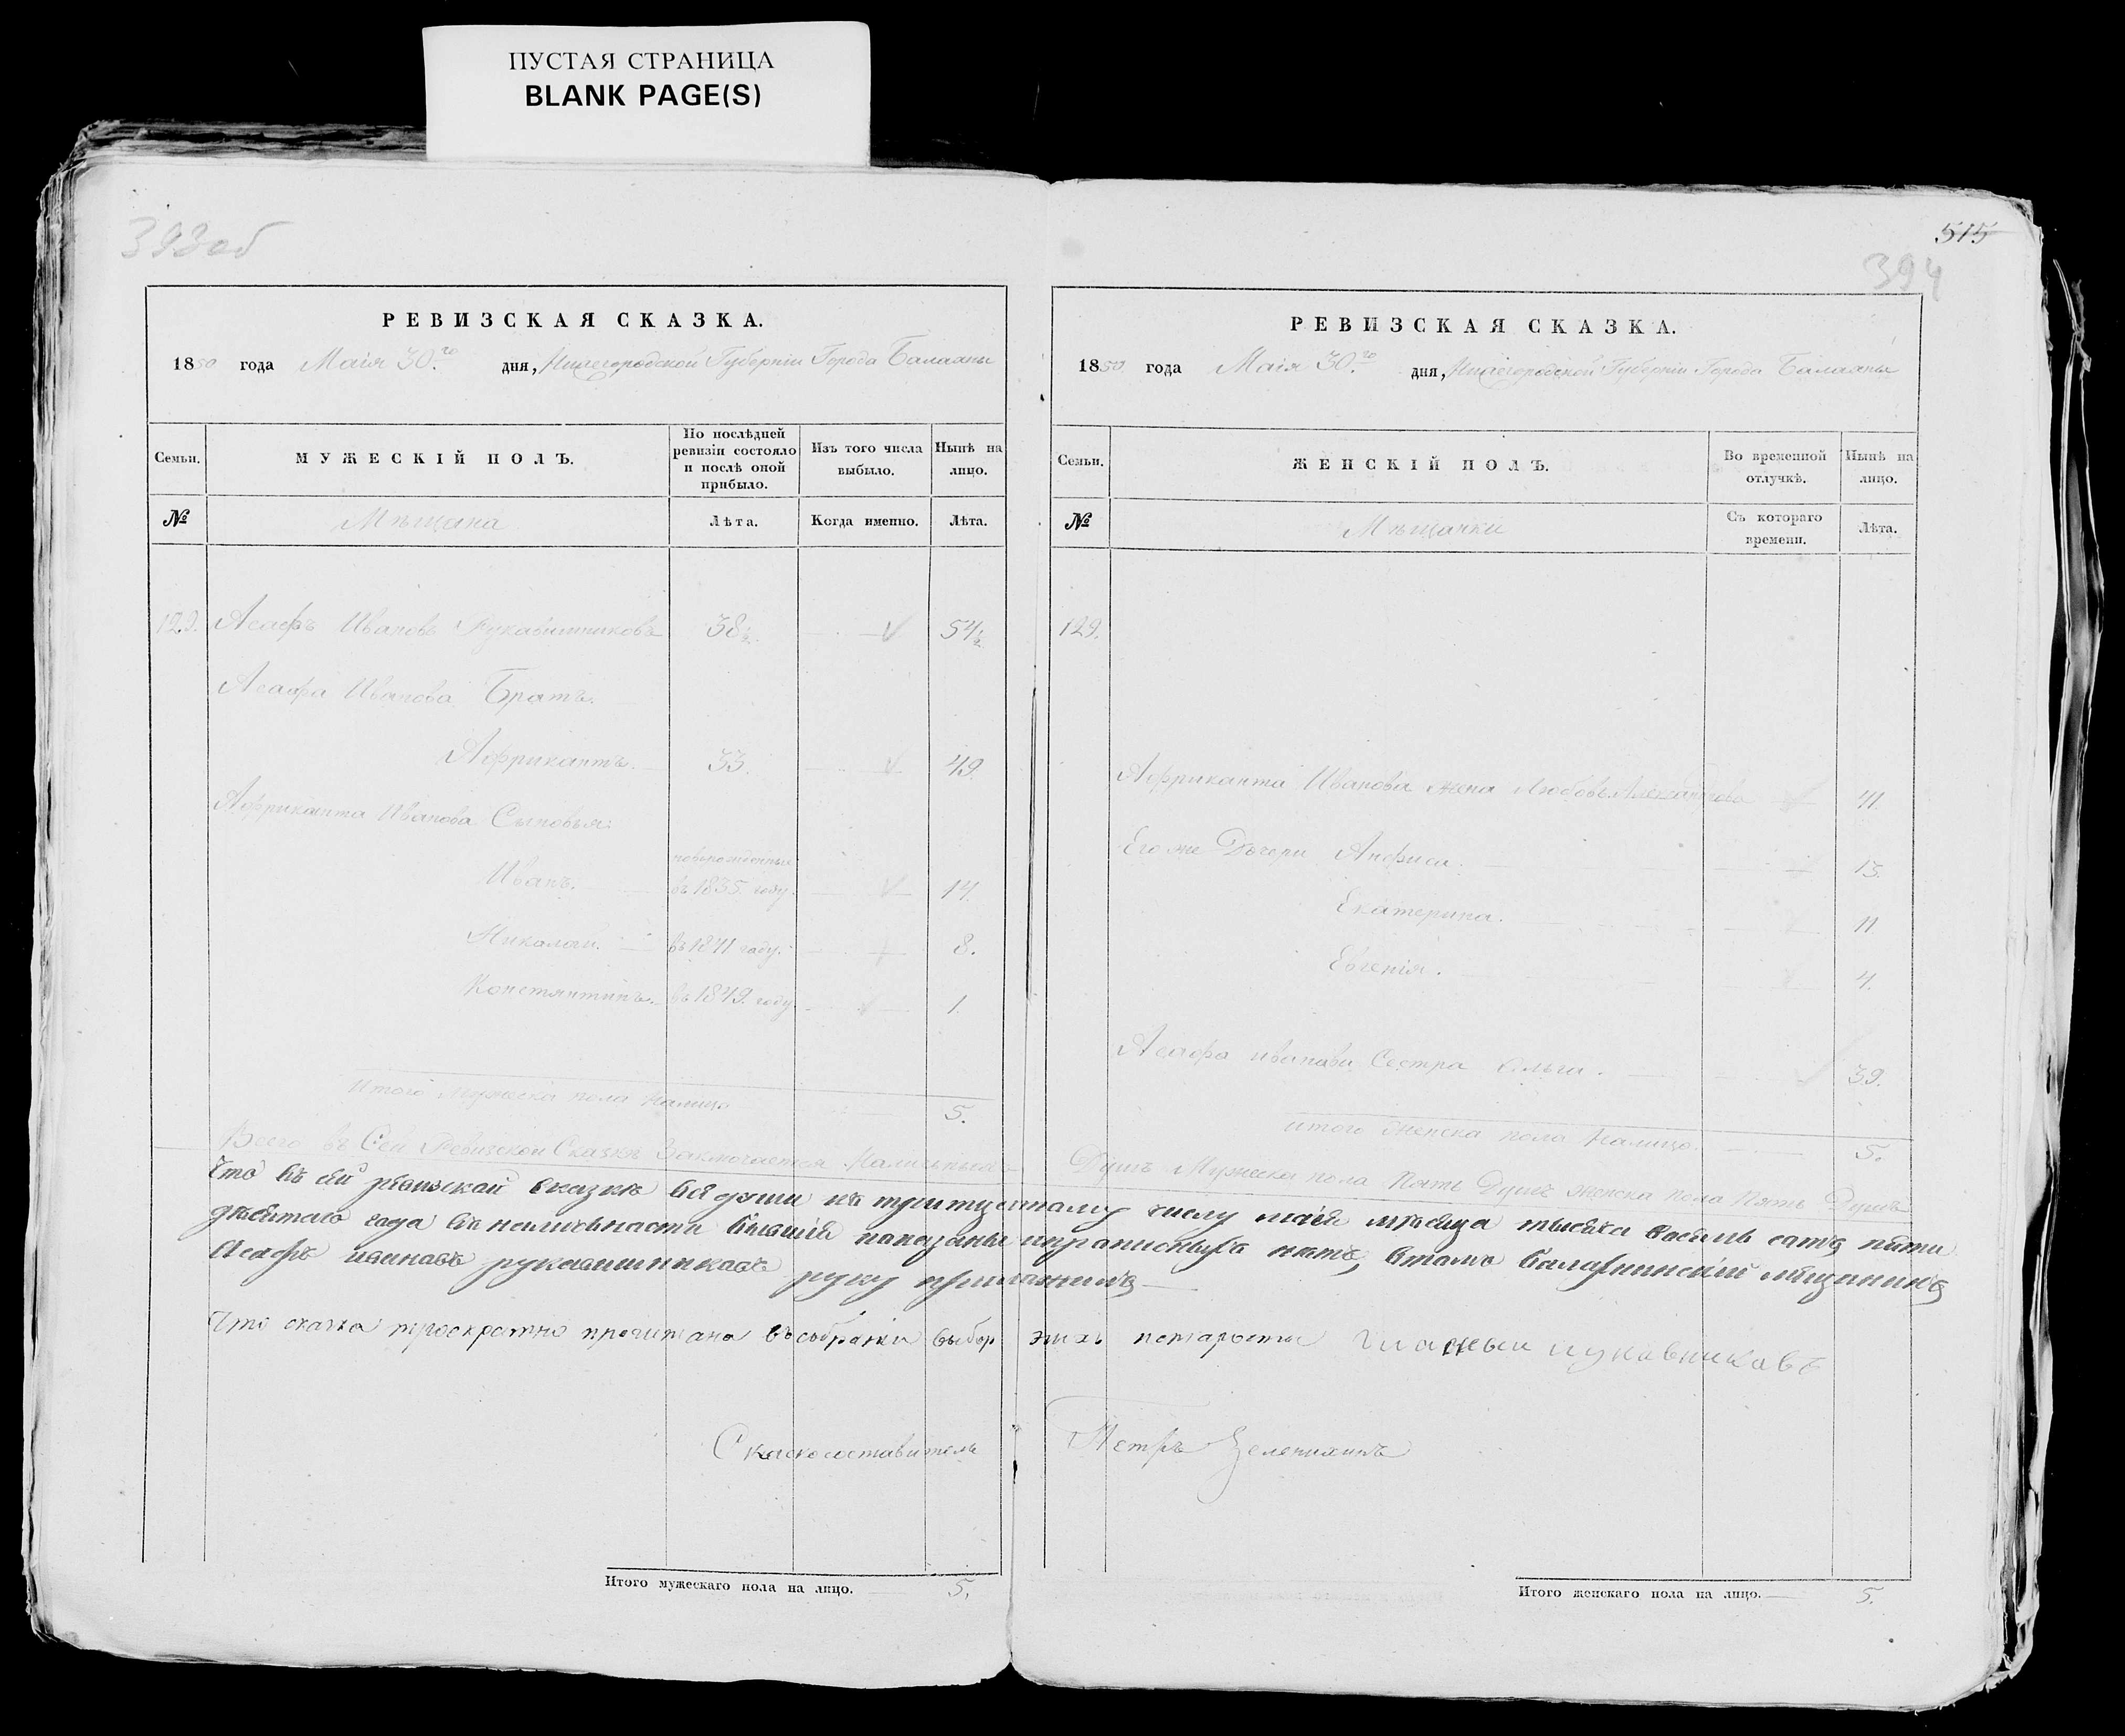 ПУСТАЯ СТРАНИЦА
BLANK PAGE(S)
393об
РЕВИЗСКАЯ СКАЗКА.
1850 года Маія 30.го дня, Нижегородской Губерніи Города Балахны
Семьи. МУЖЕСКІЙ ПОЛЪ. По послѣдней ревизіи состояло и послѣ оной прибыло. Изъ того числа выбыло. Нынѣ на лицо.
№ Мѣщана Лѣта. Когда именно. Лѣта.
129. Асафъ Ивановъ Рукавишниковъ 38½. 54½
Асафа Иванова Братъ.
Африкантъ. 33. 49.
Африканта Иванова Сыновья:
Иванъ. новорожденный въ 1835 году. 14.
Николай. въ 1841 году. 8.
Констянтинъ. въ 1849. году 1.
Итого Мужеска пола налицо 5.
Итого мужескаго пола на лицо. 5.
515
394
РЕВИЗСКАЯ СКАЗКА.
1850 года Маія 30.го дня, Нижегородской Губерніи Города Балахны
Семьи. ЖЕНСКІЙ ПОЛЪ. Во временной отлучкѣ. Нынѣ на лицо.
№ Мѣщанки Съ котораго времени. Лѣта.
129.
Африканта Иванова жена Любовь Александрова 41.
Его же Дочери Анфиса. 13.
Екатерина. 11
Евгенія. 4.
Асафа иванова Сестра Ольга. 39.
итого женска пола налицо. 5.
Всего въ Сей Ревизской Сказкѣ Заключается Наличныхъ Душъ Мужеска пола Пять Душъ женска пола Пять Душъ
Что въ сей ревизской сказке все души къ тритцетому числу маія месяца тысеча восемь сотъ пяти
десятаго года въ неличьнасти бывшія показаны ипрописныхъ нетъ, втомъ балахнинскіи мещининъ
Асафъ ивановъ рукавишникавъ руку приложилъ
Что сказка троекратно прочитана въ собраніи
Скаскосоставитель Петръ Зеленихинъ
Итого женскаго пола на лицо. 5.